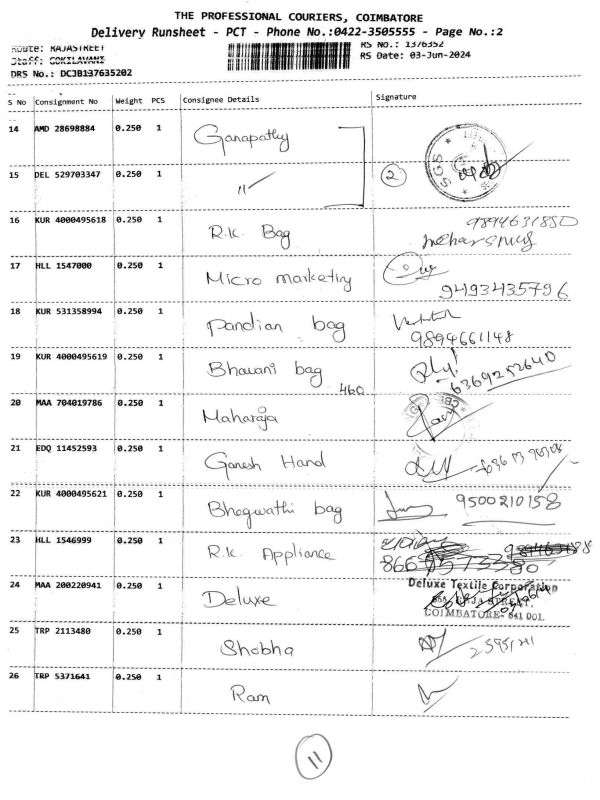 THE PROFESSIONAL COURIERS, COIMBATORE
Delivery Runsheet - PCT - Phone No.:0422-3505555 - Page No.:2
Route: RAJASTREET
RS No.: 1376352
Staff: GOKILAVANI
RS Date: 03-Jun-2024
DRS No.: DCJB137635202
S No Consignment No Weight PCS Consignee Details Signature
14 AMD 28698884 0.250 1 Ganapathy
15 DEL 529703347 0.250 1 〃 2
SGS
16 KUR 4000495618 0.250 1 R.K. Bag 9894631850
17 HLL 1547000 0.250 1 Micro marketing
9493435796
18 KUR 531358994 0.250 1 Pandian bag
9894661148
19 KUR 4000495619 0.250 1 Bhavani bag
460 6369252640
20 MAA 704019786 0.250 1 Maharaja
21 EDQ 11452593 0.250 1 Ganesh Hand
22 KUR 4000495621 0.250 1 Bhagwathi bag 9500210158
23 HLL 1546999 0.250 1 R.K. Appliance
24 MAA 200220941 0.250 1 Deluxe
Deluxe Textile Corporation
RAJA STREET,
COIMBATORE- 641 001.
25 TRP 2113480 0.250 1 Shobha
26 TRP 5371641 0.250 1 Ram
11